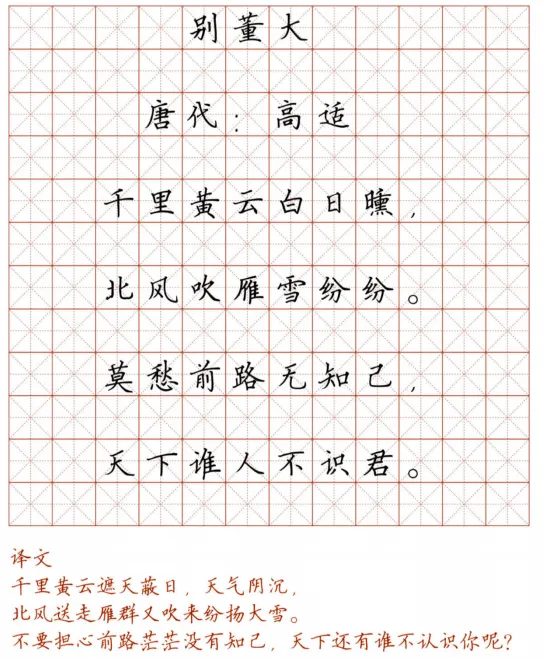 别董大
唐代：高适
千里黄云白日曛，
北风吹雁雪纷纷。
莫愁前路无知己，
天下谁人不识君。
译文
千里黄云遮天蔽日，天气阴沉，
北风送走雁群又吹来纷扬大雪。
不要担心前路茫茫没有知己，天下还有谁不认识你呢？